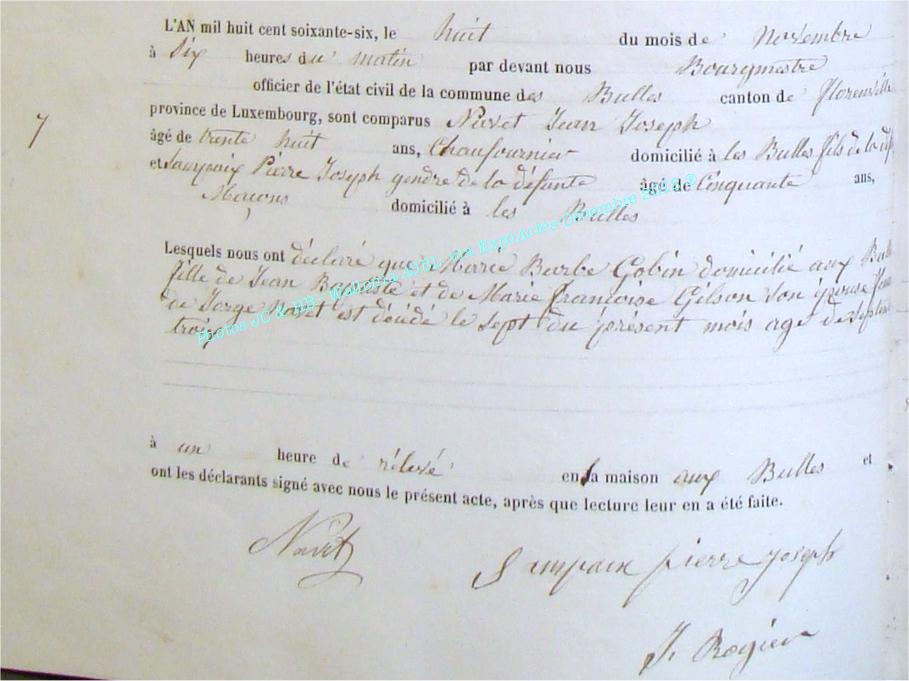 L'AN mil huit cent soixante-six, le huit du mois de Novembre
à dix heures du matin par devant nous Bourgmestre
officier de l'état civil de la commune des Bulles canton de florenville
7 province de Luxembourg, sont comparus Navet Jean Joseph
âgé de trente huit ans, Chaufournier domicilié à les Bulles fils de la déf
et Sampaix Pierre Joseph gendre de la défunte âgé de Cinquante ans,
Maçons domicilié à les Bulles
Lesquels nous ont déclaré que Marie Barbe Gobin domicilié aux Bulles
fille de Jean Baptiste et de Marie françoise Gilson son épouse
de Serge Navet est décédé le sept du présent mois agé de septente
trois
à un heure de rélevé en la maison aux Bulles et
ont les déclarants signé avec nous le présent acte, après que lecture leur en a été faite.
Navet
Sampaix pierre joseph
J. Rogier
Photos JC & BB - Wallonie ASBL